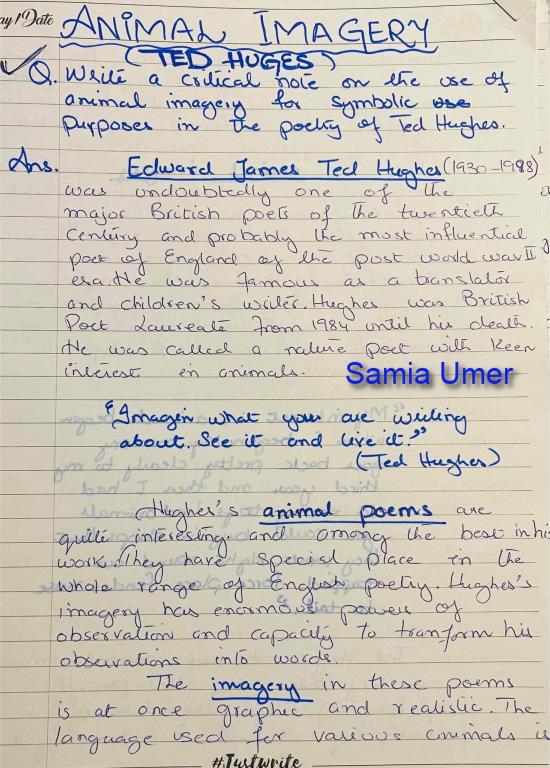 ay/Date
ANIMAL IMAGERY
(TED HUGES)
Q. Write a critical note on the use of
animal imagery for symbolic use
purposes in the poetry of Ted Hughes.
Ans. Edward James Ted Hughes (1930-1998)
was undoubtedly one of the
major British poets of the twentieth
century and probably the most influential
poet of England of the post world war II
era. He was famous as a translator
and children's writer. Hughes was British
Poet Laureate from 1984 until his death.
He was called a nature poet with keen
interest in animals.
Samia Umer
"Imagin what you are writing
about. See it and live it."
(Ted Hughes)
Hughes's animal poems are
quite interesting and among the best in his
work. They have special place in the
whole range of English poetry. Hughes's
imagery has enormous powers of
observation and capacity to transform his
observations into words.
The imagery in these poems
is at once graphic and realistic. The
language used for various animals is
#Justwrite